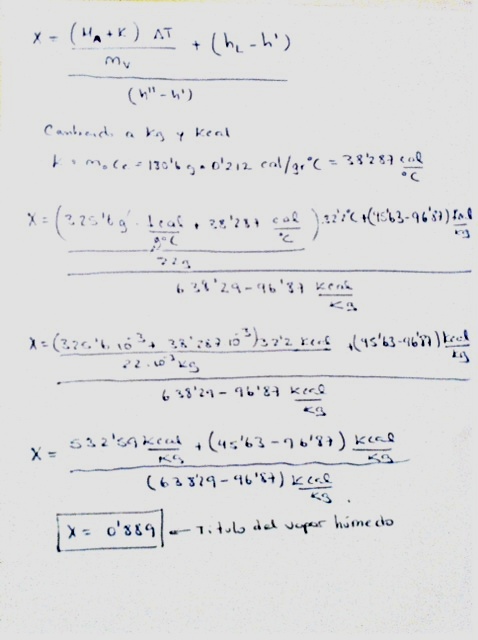 X = (M_A + K) ΔT / m_v + (h_L - h')
(h'' - h')
Cambiando a Kg y Kcal
K = m_c C_c = 180'6 g · 0'212 cal/gr°C = 38'287 cal/°C
X = (325'6 g · 1 cal/g°C + 38'287 cal/°C) 32'2°C + (45'63 - 96'87) Kcal/Kg
22 g
638'29 - 96'87 Kcal/Kg
X = (325'6 · 10^-3 + 38'287 · 10^-3) 32'2 Kcal + (45'63 - 96'87) Kcal/Kg
22 · 10^-3 Kg
638'29 - 96'87 Kcal/Kg
X = 532'59 Kcal/Kg + (45'63 - 96'87) Kcal/Kg
(638'29 - 96'87) Kcal/Kg
X = 0'889 ← Titulo del vapor húmedo